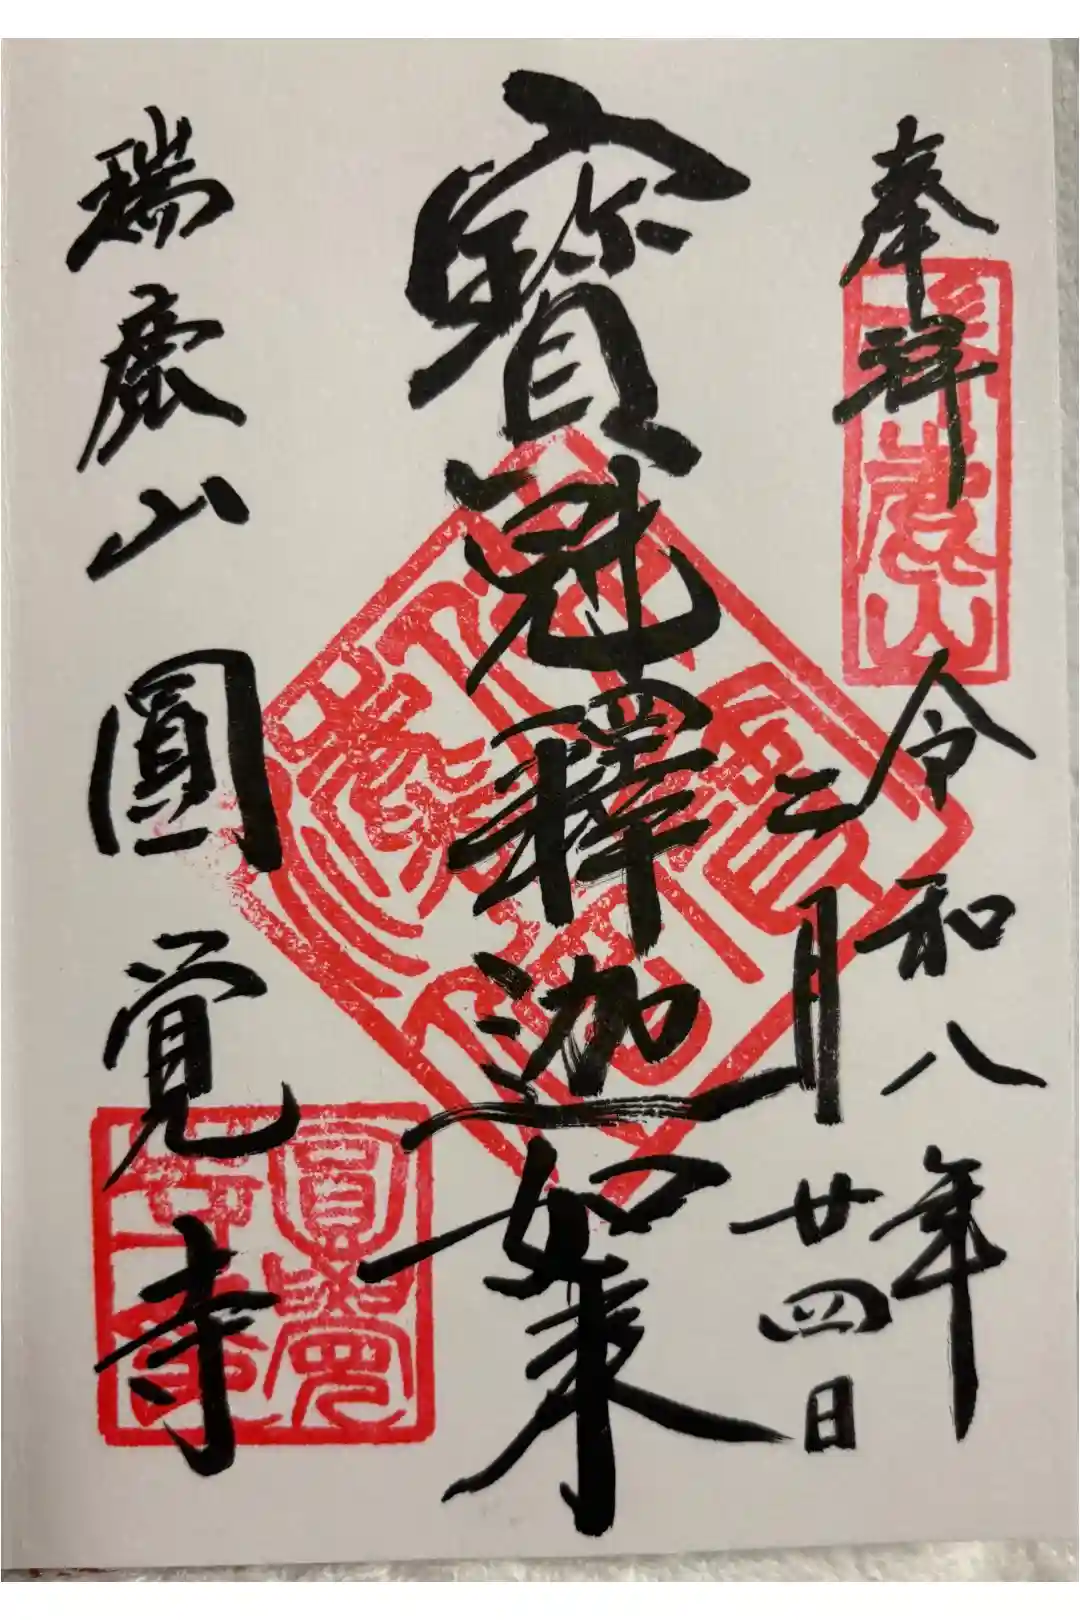 奉拝
令和八年
二月廿四日
寶冠釋迦如来
瑞鹿山圓覺寺
瑞鹿山